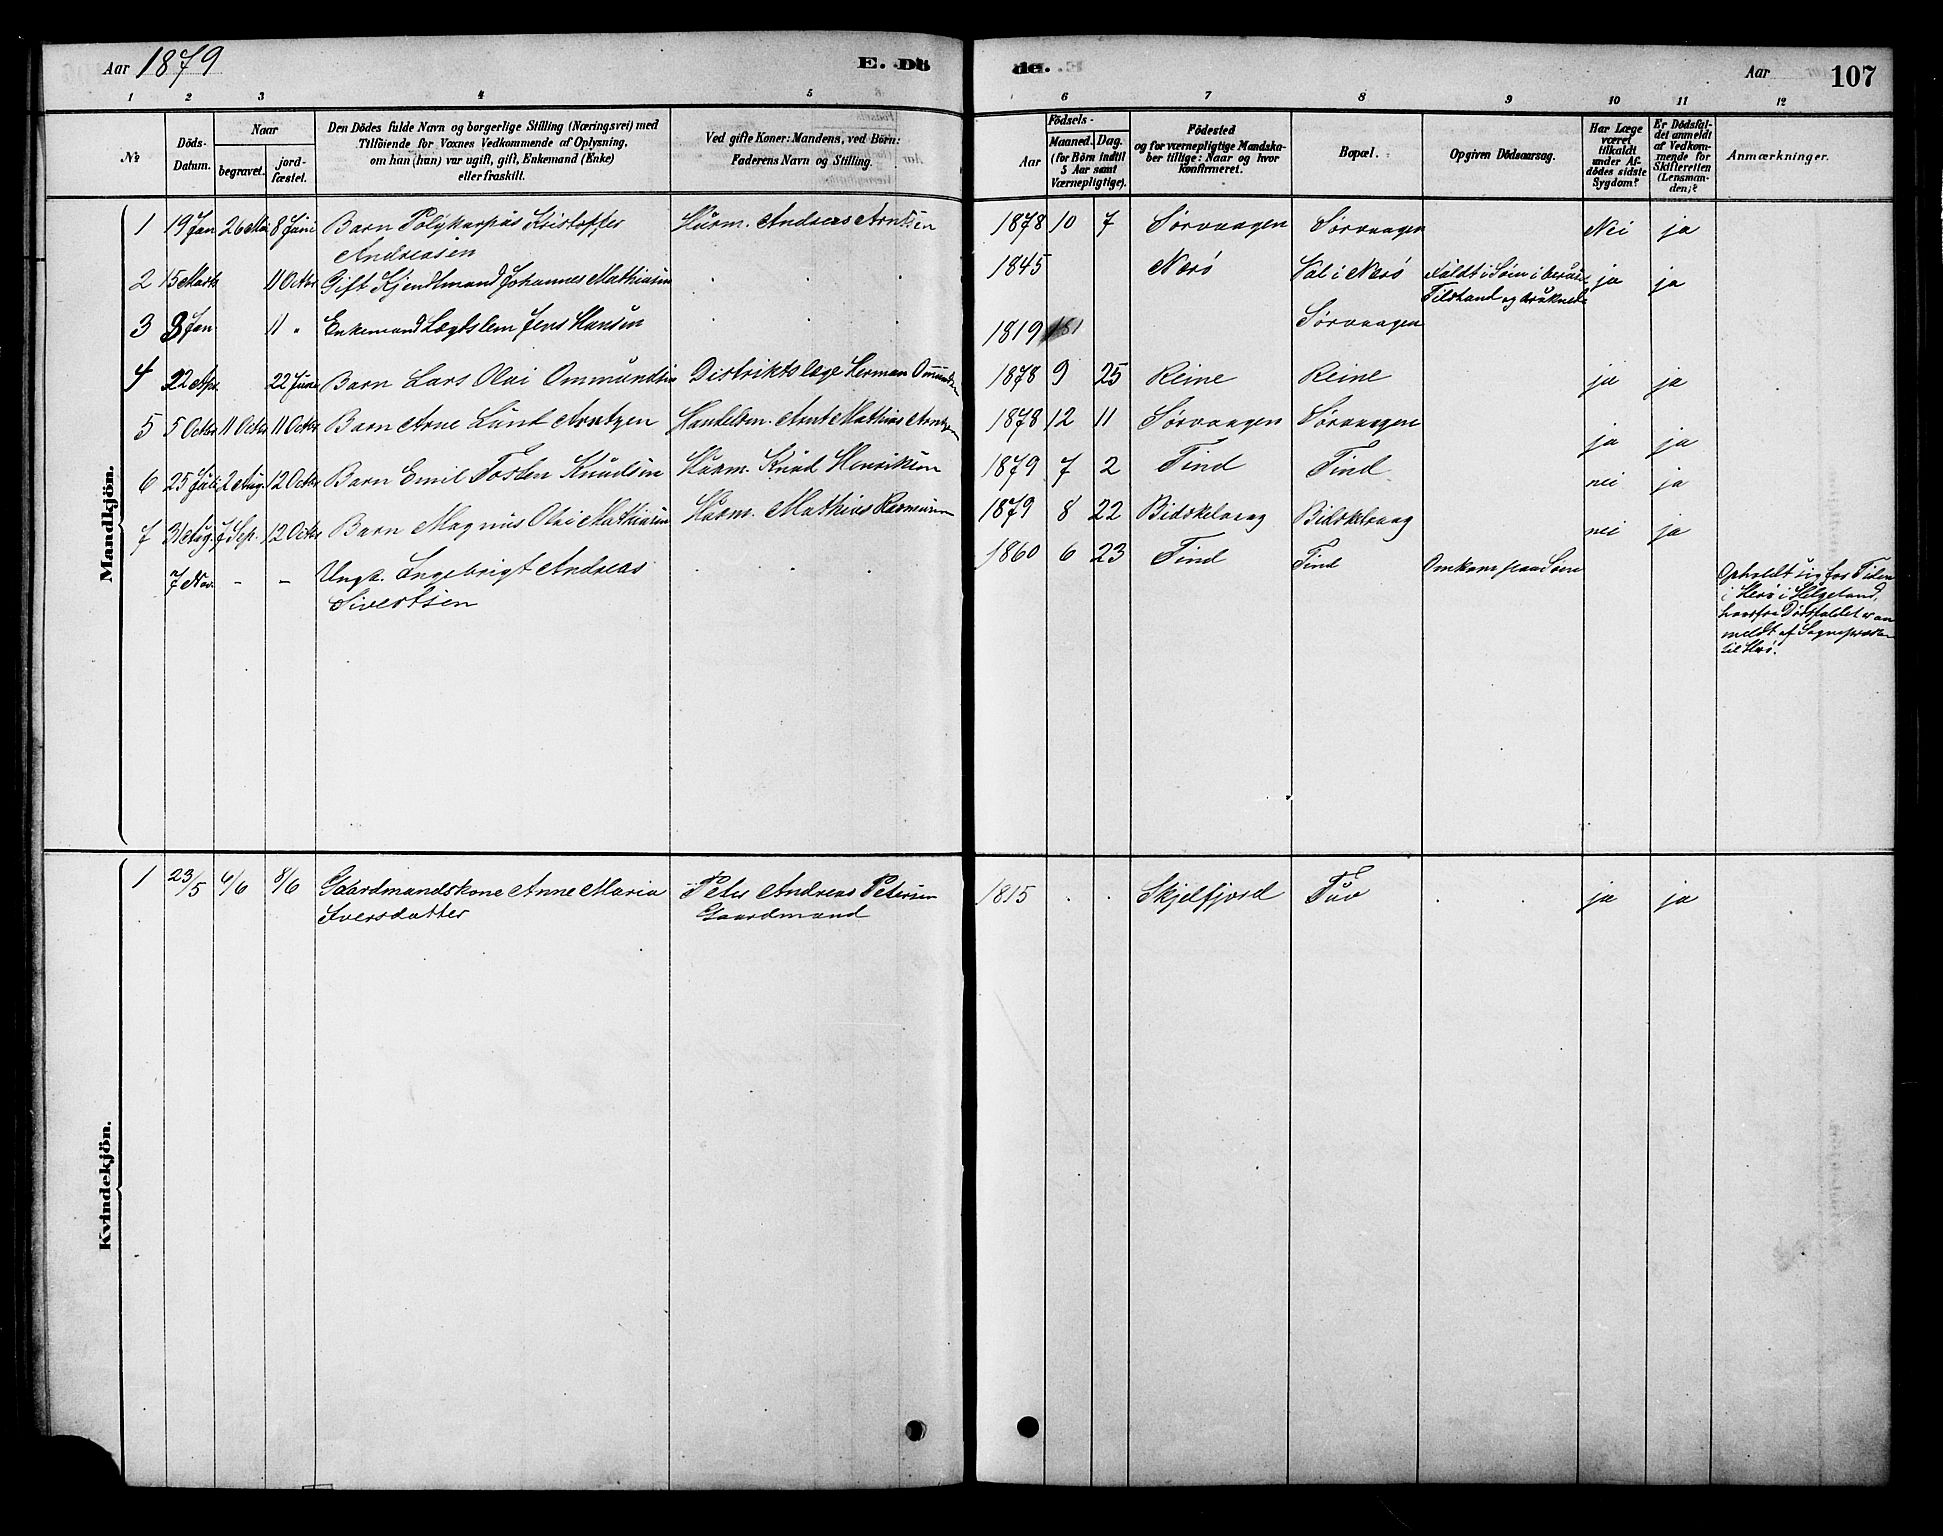 Aar 1879 E. Dö de. Aar 107
1 2 3 4 5 6 7 8 9 10 11 12
№
Döds-
Datum.
Naar
begravet. jord-
fæstet.
Den Dödes fulde Navn og borgerlige Stilling (Næringsvei) med
Tilföiende for Voxnes Vedkommende af Oplysning,
om han (hun) var ugift, gift, Enkemand (Enke)
eller fraskilt.
Ved gifte Koner: Mandens, ved Börn:
Faderens Navn og Stilling.
Födsels-
Aar Maaned. Dag.
(for Börn indtil
5 Aar samt
Værnepligtige).
Födested
og for værnepligtige Mandska-
ber tillige: Naar og hvor
konfirmeret.
Bopæl.
Opgiven Dödsaarsag.
Har Læge
været
tilkaldt
under Af-
dödes sidste
Sygdom?
Er Dödsfal-
det anmeldt
af Vedkom-
mende for
Skifteretten
(Lensman-
den)?
Anmærkninger.
Mandkjön.
1 19 Jan 26 Mai 8 Juni Barn Polykarpus Kristoffer Husm. Andreas Arntsen 1878 10 7 Sørvaagen Sørvaagen Nei ja
Andreasen
2 15 Marts 11 Octbr Gift Johannes Mathiasen 1845 Nerö Val i Nerö Faldt i Søen i beruset ja ja
Tilstand og druknede
3 3 Jan 11 " Enkemand Lægdslem Jens Hansen 1819 Sørvaagen
4 22 Apr. 22 Juni Barn Lars Olai Ommundsen Distriktslæge Herman Ommundsen 1878 9 25 Reine Reine ja ja
5 5 Octbr 11 Octbr 11 Octbr Barn Arne Lund Arntzen Handelsm. Arnt Mathias Arntzen 1878 12 11 Sørvaagen Sørvaagen ja ja
6 25 Juli 2 Aug. 12 Octbr Barn Emil Torsten Knudsen Husm. Knud Henriksen 1879 7 2 Tind Tind nei ja
7 31 Aug. 7 Sep. 12 Octbr Barn Magnus Olai Mathiasen Husm. Mathias 1879 8 22 nei ja
7 Nov. - - Ungk. Ingebrigt Andreas 1860 6 23 Tind Tind Omkom paa Søen
Sivertsen
Opholdt sig for Tiden
i Herö i Helgeland,
hvorfra Dödsfaldet er an
meldt af Sognepresten
til Herö.
Kvindekjön.
1 23/5 6/6 8/6 Gaardmandskone Anne Maria Peter Andreas Petersen 1815 Skjelfjord Tuv ja ja
Iversdatter Gaardmand